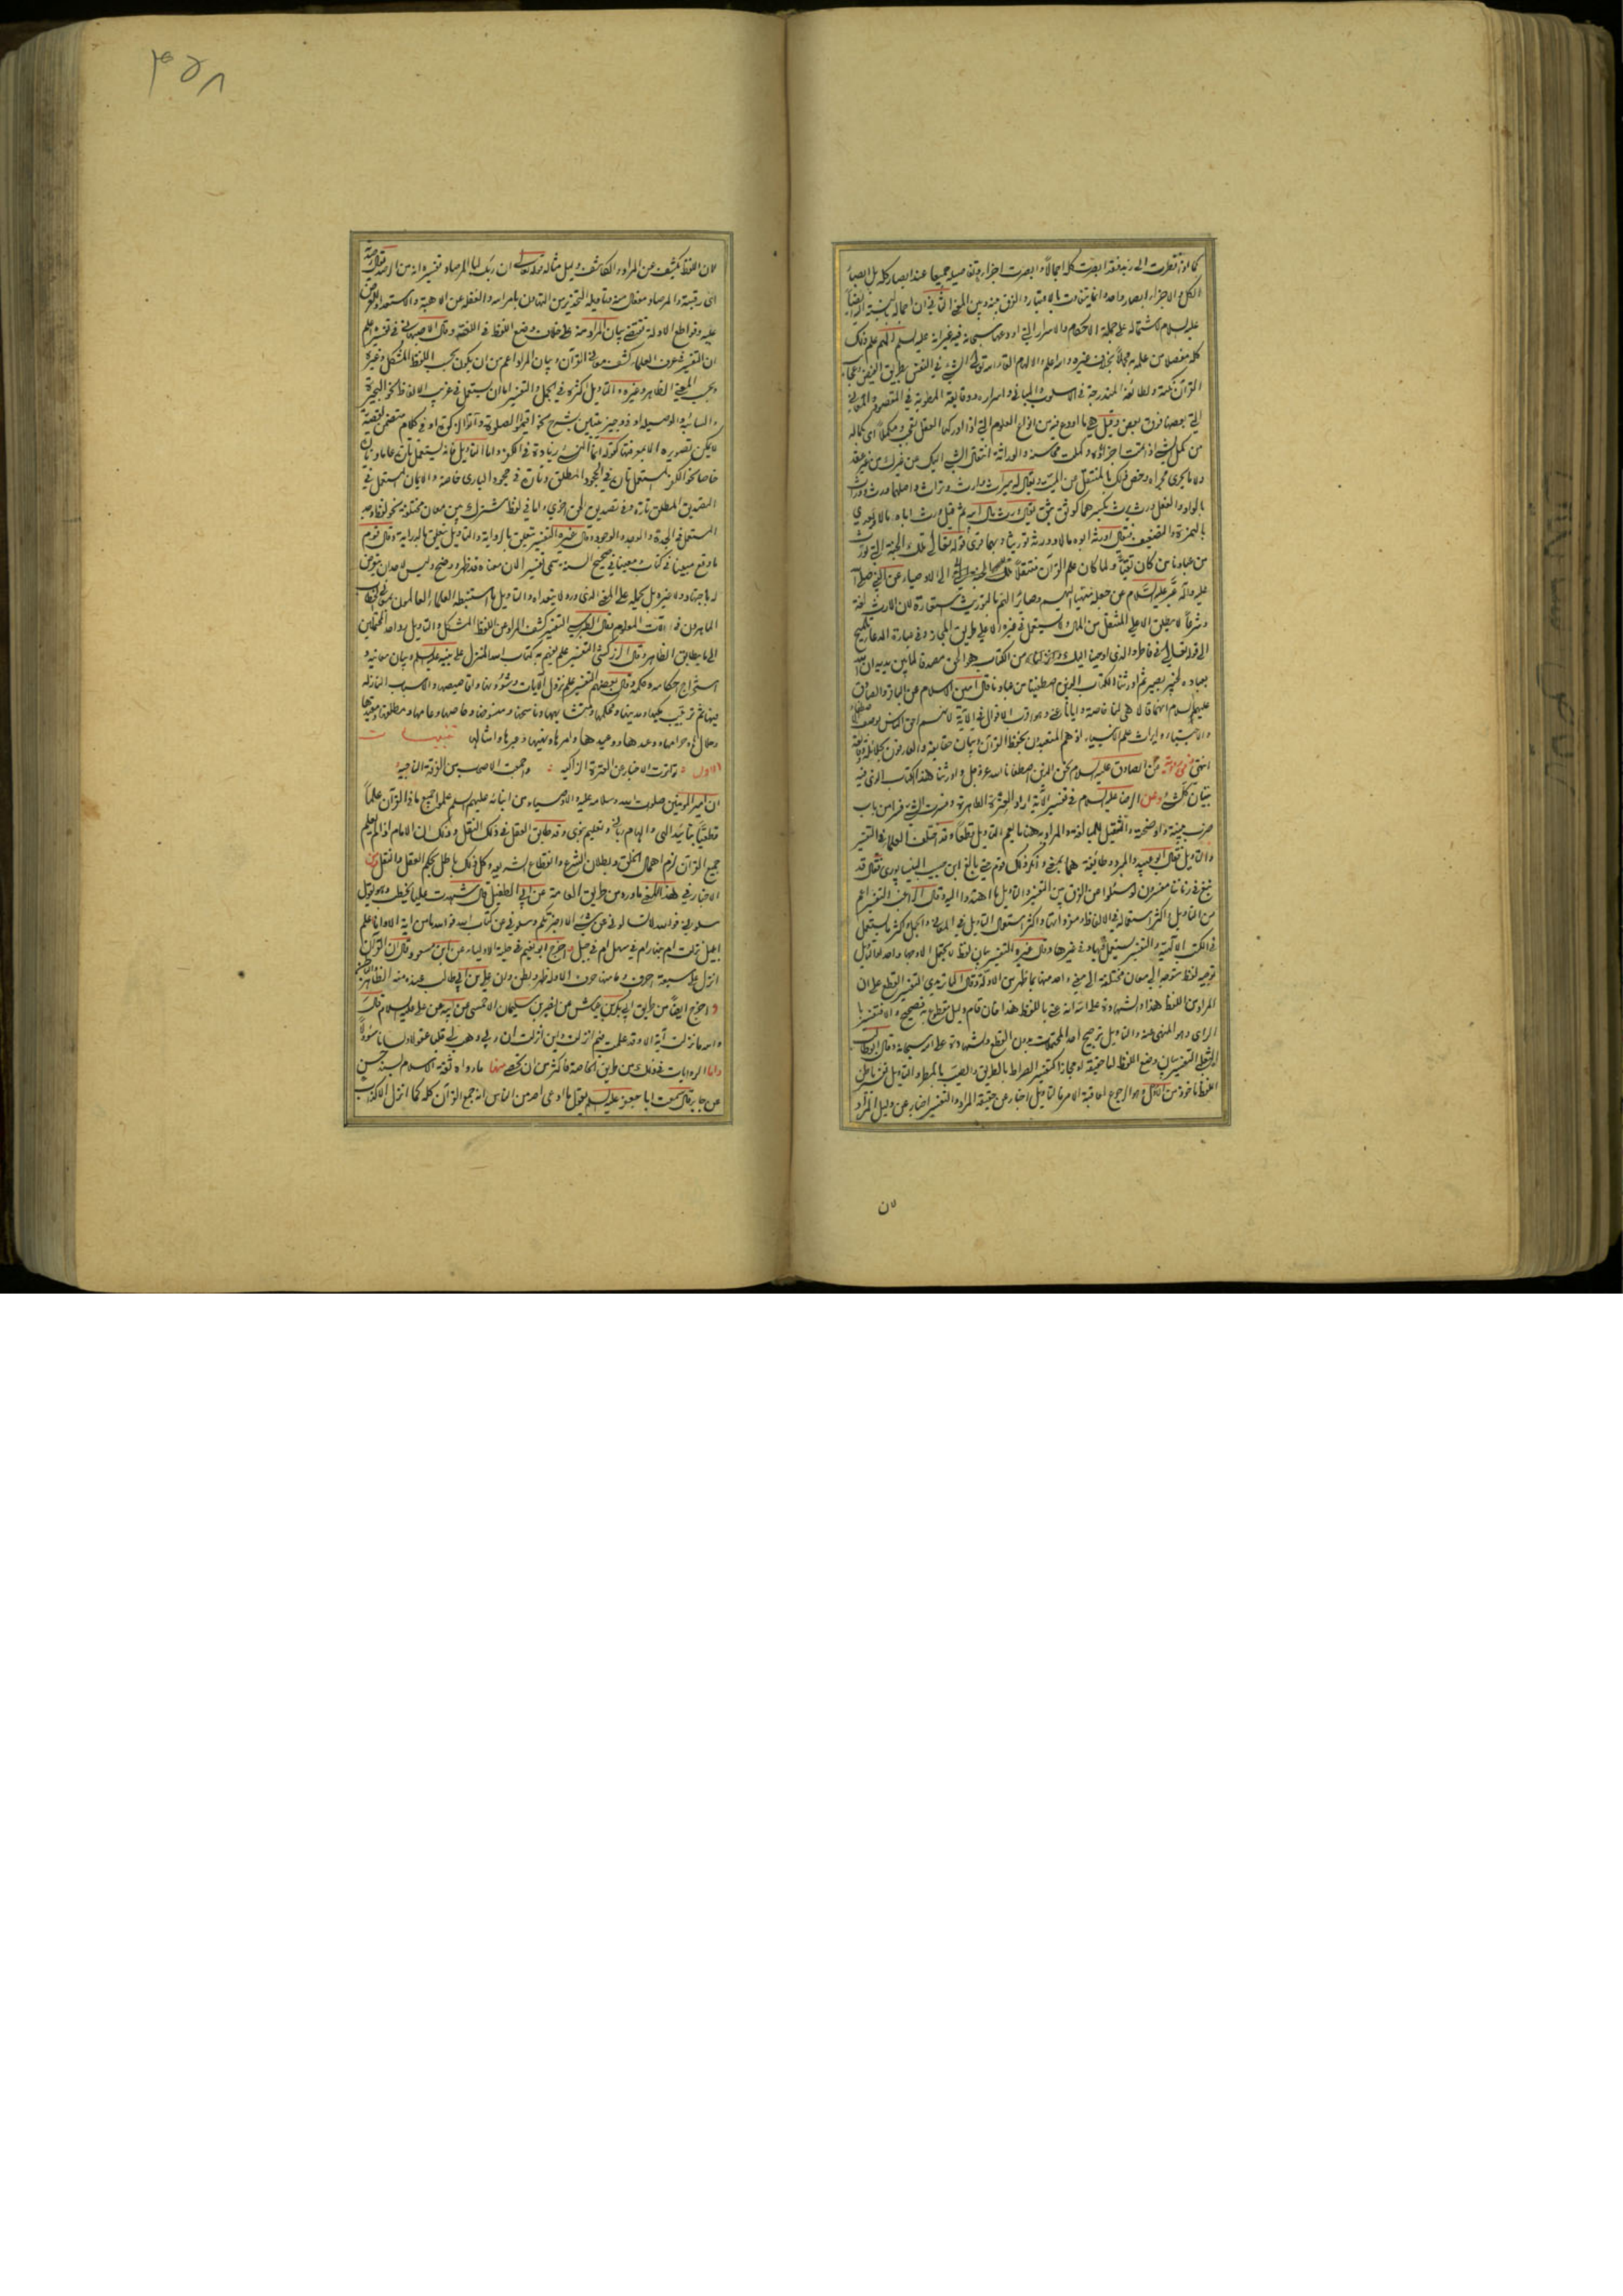 كما اذا نظرت الى زيد فقد ابصرت كله اجمالا و ابصرت اجزاءه و تفاصيله جميعا عند ابصار كله بل ابصار
الكل و الاجزاء ابصار واحد و انما يتفاوت بالاعتبار و الفرق بينه و بين المعنى الثاني ان اجماله بالنسبة اليه ايضا
عليه السلام لاشتماله على جملة الاحكام و الاسرار التي اودعها سبحانه فيه
كله مفصلا من علمه مجملا بخلاف غيره و الله اعلم و الالهام القاء الله تعالى الشيء في النفس بطريق الفيض و عجائب
القرآن نكته و لطائفه المندرجة في الاسلوب و المباني و اسراره و دقايقه المطوية في المقصود و المعاني
التي بعضها فوق بعض و قيل هي ما اودع فيه من انواع العلوم التي اذا ادركها العقل تعجب و مكملا اى كماله
من كمل الشيء اذا تمت اجزاؤه و كملت محاسنه و الوراثة انتقال الشيء اليك عن غيرك من غير عقد
و لا ما يجري مجراه و خص ذلك بالمنتقل عن الميت و يقال له ميراث و ارث و تراث و اصلها ورث و وراث
بالواو و الفعل ورث يرث بكسرهما كوثق يثق يقال ورث مال ابيه ثم قيل ورث اباه مالا و يعدى
بالهمزة و التضعيف فيقال اورثه ابوه مالا و ورثه توريثا و بهما قرئ قوله تعالى تلك الجنة التي نورث
من عبادنا من كان تقيا و لما كان علم القرآن منتقلا الى الاوصياء عن النبي صلى الله
عليه و آله عبر عليه السلام عن جعله منتهيا اليهم و صائرا لهم بالتوريث استعارة لان الارث لغة
و شرعا لا يطلق الا على المنتقل من المال و لا يستعمل في غيره الا على طريق المجاز و في عبارة الدعاء تلميح
الى قوله تعالى في فاطر و الذي اوحينا اليك من الكتاب هو الحق مصدقا لما بين يديه ان الله
بعباده لخبير بصير ثم اورثنا الكتاب الذين اصطفينا من عبادنا قال امين الاسلام عن الباقر و الصادق
عليهما السلام انهما قالا هي لنا خاصة و ايانا عنى و هو اقرب الاقوال في الآية لانهم احق الناس بوصف الاصطفاء
و الاجتباء و ايراث علم الانبياء اذ هم المتعبدون بحفظ القرآن و بيان حقايقه و العارفون بجلائله و دقايقه
انتهى و عن الصادق عليه السلام نحن الذين اصطفانا الله عز و جل و اورثنا هذا الكتاب الذي فيه
تبيان كل شيء و عن الرضا عليه السلام في تفسير الآية اراد العترة الطاهرة و فسرت الشيء فسرا من باب
ضرب بينته و اوضحته و التثقيل للمبالغة و المراد به هنا ما يعم التاويل قطعا و قد اختلف العلماء في التفسير
و التاويل فقال ابو عبيد و المبرد و طائفة هما بمعنى و انكر ذلك قوم حتى بالغ ابن حبيب النيسابوري فقال قد
نبغ في زماننا مفسرون لو سئلوا عن الفرق بين التفسير و التاويل ما اهتدوا اليه و قال الراغب التفسير اعم
من التاويل و اكثر استعماله في الالفاظ و مفرداتها و اكثر استعمال التاويل في المعاني و الجمل و اكثر ما يستعمل
في الكتب الالهية و التفسير يستعمل فيها و في غيرها و قال غيره التفسير بيان لفظ لا يحتمل الا وجها واحدا و التاويل
توجيه لفظ متوجه الى معان مختلفة الى معنى واحد منها بما ظهر من الادلة و قال الماتريدي التفسير القطع على ان
المراد من اللفظ هذا و الشهادة على الله انه عنى باللفظ هذا فان قام دليل مقطوع به فصحيح و الا فتفسير با
الراى و هو المنهي عنه و التاويل ترجيح احد المحتملات بدون القطع و الشهادة على الله سبحانه و قال ابوطالب
الثعلبي التفسير بيان وضع اللفظ اما حقيقة او مجازا كتفسير الصراط بالطريق و الصيب بالمطر و التاويل تفسير باطن
اللفظ ماخوذ من الاول و هو الرجوع لعاقبة الامر فالتاويل اخبار عن حقيقة المراد و التفسير اخبار عن دليل المراد
لان
٣٥٨
لان اللفظ يكشف عن المراد و الكاشف دليل مثاله قوله تعالى ان ربك لبالمرصاد تفسيره انه من الرصد يقال رصدته
اى رقبته و المرصاد مفعال منه و تاويله التحذير من التهاون بامر الله و الغفلة عن الاهبة و الاستعداد للعرض
عليه و قواطع الادلة تقتضي بيان المراد منه على خلاف وضع اللفظ في اللغة و قال الاصبهاني في تفسيره اعلم
ان التفسير في عرف العلماء كشف معاني القرآن و بيان المراد اعم من ان يكون بحسب اللفظ المشكل و غيره
و بحسب المعنى الظاهر و غيره و التاويل اكثره في الجمل و التفسير اما ان يستعمل في غريب الالفاظ نحو البحيرة
و السائبة و الوصيلة او في وجيز يتبين بشرح نحو اقيموا الصلوة و آتوا الزكوة او في كلام متضمن لقصة
لا يمكن تصويره الا بمعرفتها كقوله انما النسيء زيادة في الكفر و اما التاويل فانه يستعمل تارة عاما و تارة
خاصا نحو الكفر يستعمل تارة في الجحود المطلق و تارة في جحود الباري خاصة و الايمان المستعمل في
التصديق المطلق تارة و في تصديق الحق اخرى و اما في لفظ مشترك بين معان مختلفة نحو لفظ وجد
المستعمل في الجدة و الوجد و الوجود و قال غيره التفسير يتعلق بالرواية و التاويل يتعلق بالدراية و قال قوم
ما وقع مبينا في كتاب الله و معينا في صحيح السنة سمى تفسيرا لان معناه قد ظهر و وضح و ليس لاحد ان يتعرض
له باجتهاد و لا غيره بل يحمله على المعنى الذي ورد لا يتعداه و التاويل ما استنبطه العلماء العالمون بمعاني الخطاب
الماهرون في الات العلوم و قال الطبرسي التفسير كشف المراد عن اللفظ المشكل و التاويل رد احد المحتملين
الى ما يطابق الظاهر و قال الزركشي التفسير علم يفهم به كتاب الله المنزل على نبيه عليه السلام و بيان معانيه و
استخراج احكامه و حكمه و قال بعضهم التفسير علم نزول الآيات و شؤونها و اقاصيصها و الاسباب النازلة
فيها ثم ترتيب مكيها و مدنيها و محكمها و متشابهها و ناسخها و منسوخها و خاصها و عامها و مطلقها و مقيدها
و حلالها و حرامها و وعدها و وعيدها و امرها و نهيها و عبرها و امثالها تنبيهات
الاول تواترت الاخبار عن العترة الزاكية و اجمعت الاصحاب من الفرقة الناجية
ان امير المؤمنين صلوات الله و سلامه عليه و الاوصياء من ابنائه عليهم السلم علموا جميع ما في القرآن علما
قطعيا بتاييد الهي و الهام رباني و تعليم نبوي و قد طابق العقل في ذلك النقل و ذلك ان الامام اذا لم يعلم
جميع القرآن لزم اهمال الخلق و بطلان الشرع و انقطاع الشريعة و كل ذلك باطل بحكم العقل و النقل و من
الاخبار في هذا المعنى ما ورد من طريق العامة عن ابي الطفيل قال شهدت عليا يخطب و هو يقول
سلوني فوالله لا تسالوني عن شيء الا اخبرتكم و سلوني عن كتاب الله فوالله ما من اية الا و انا اعلم
ابليل نزلت ام بنهار ام في سهل ام في جبل و اخرج ابو نعيم في حلية الاولياء عن ابن مسعود قال ان القرآن
انزل على سبعة احرف ما منها حرف الا و له ظهر و بطن و ان علي بن ابي طالب عنده منه الظاهر و الباطن
و اخرج ايضا من طريق ابي بكر بن عياش عن نصير بن سليمان الاحمسي عن ابيه عن علي عليه السلام قال
و الله ما نزلت آية الا و قد علمت فيم انزلت و اين انزلت ان ربي وهب لي قلبا عقولا و لسانا سؤولا
و اما الروايات في ذلك من طريق الخاصة فاكثر من ان تحصى منها ما رواه ثقة الاسلام بسند حسن
عن جابر قال سمعت ابا جعفر عليه السلم يقول ما ادعى احد من الناس انه جمع القرآن كله كما انزل الا كذاب